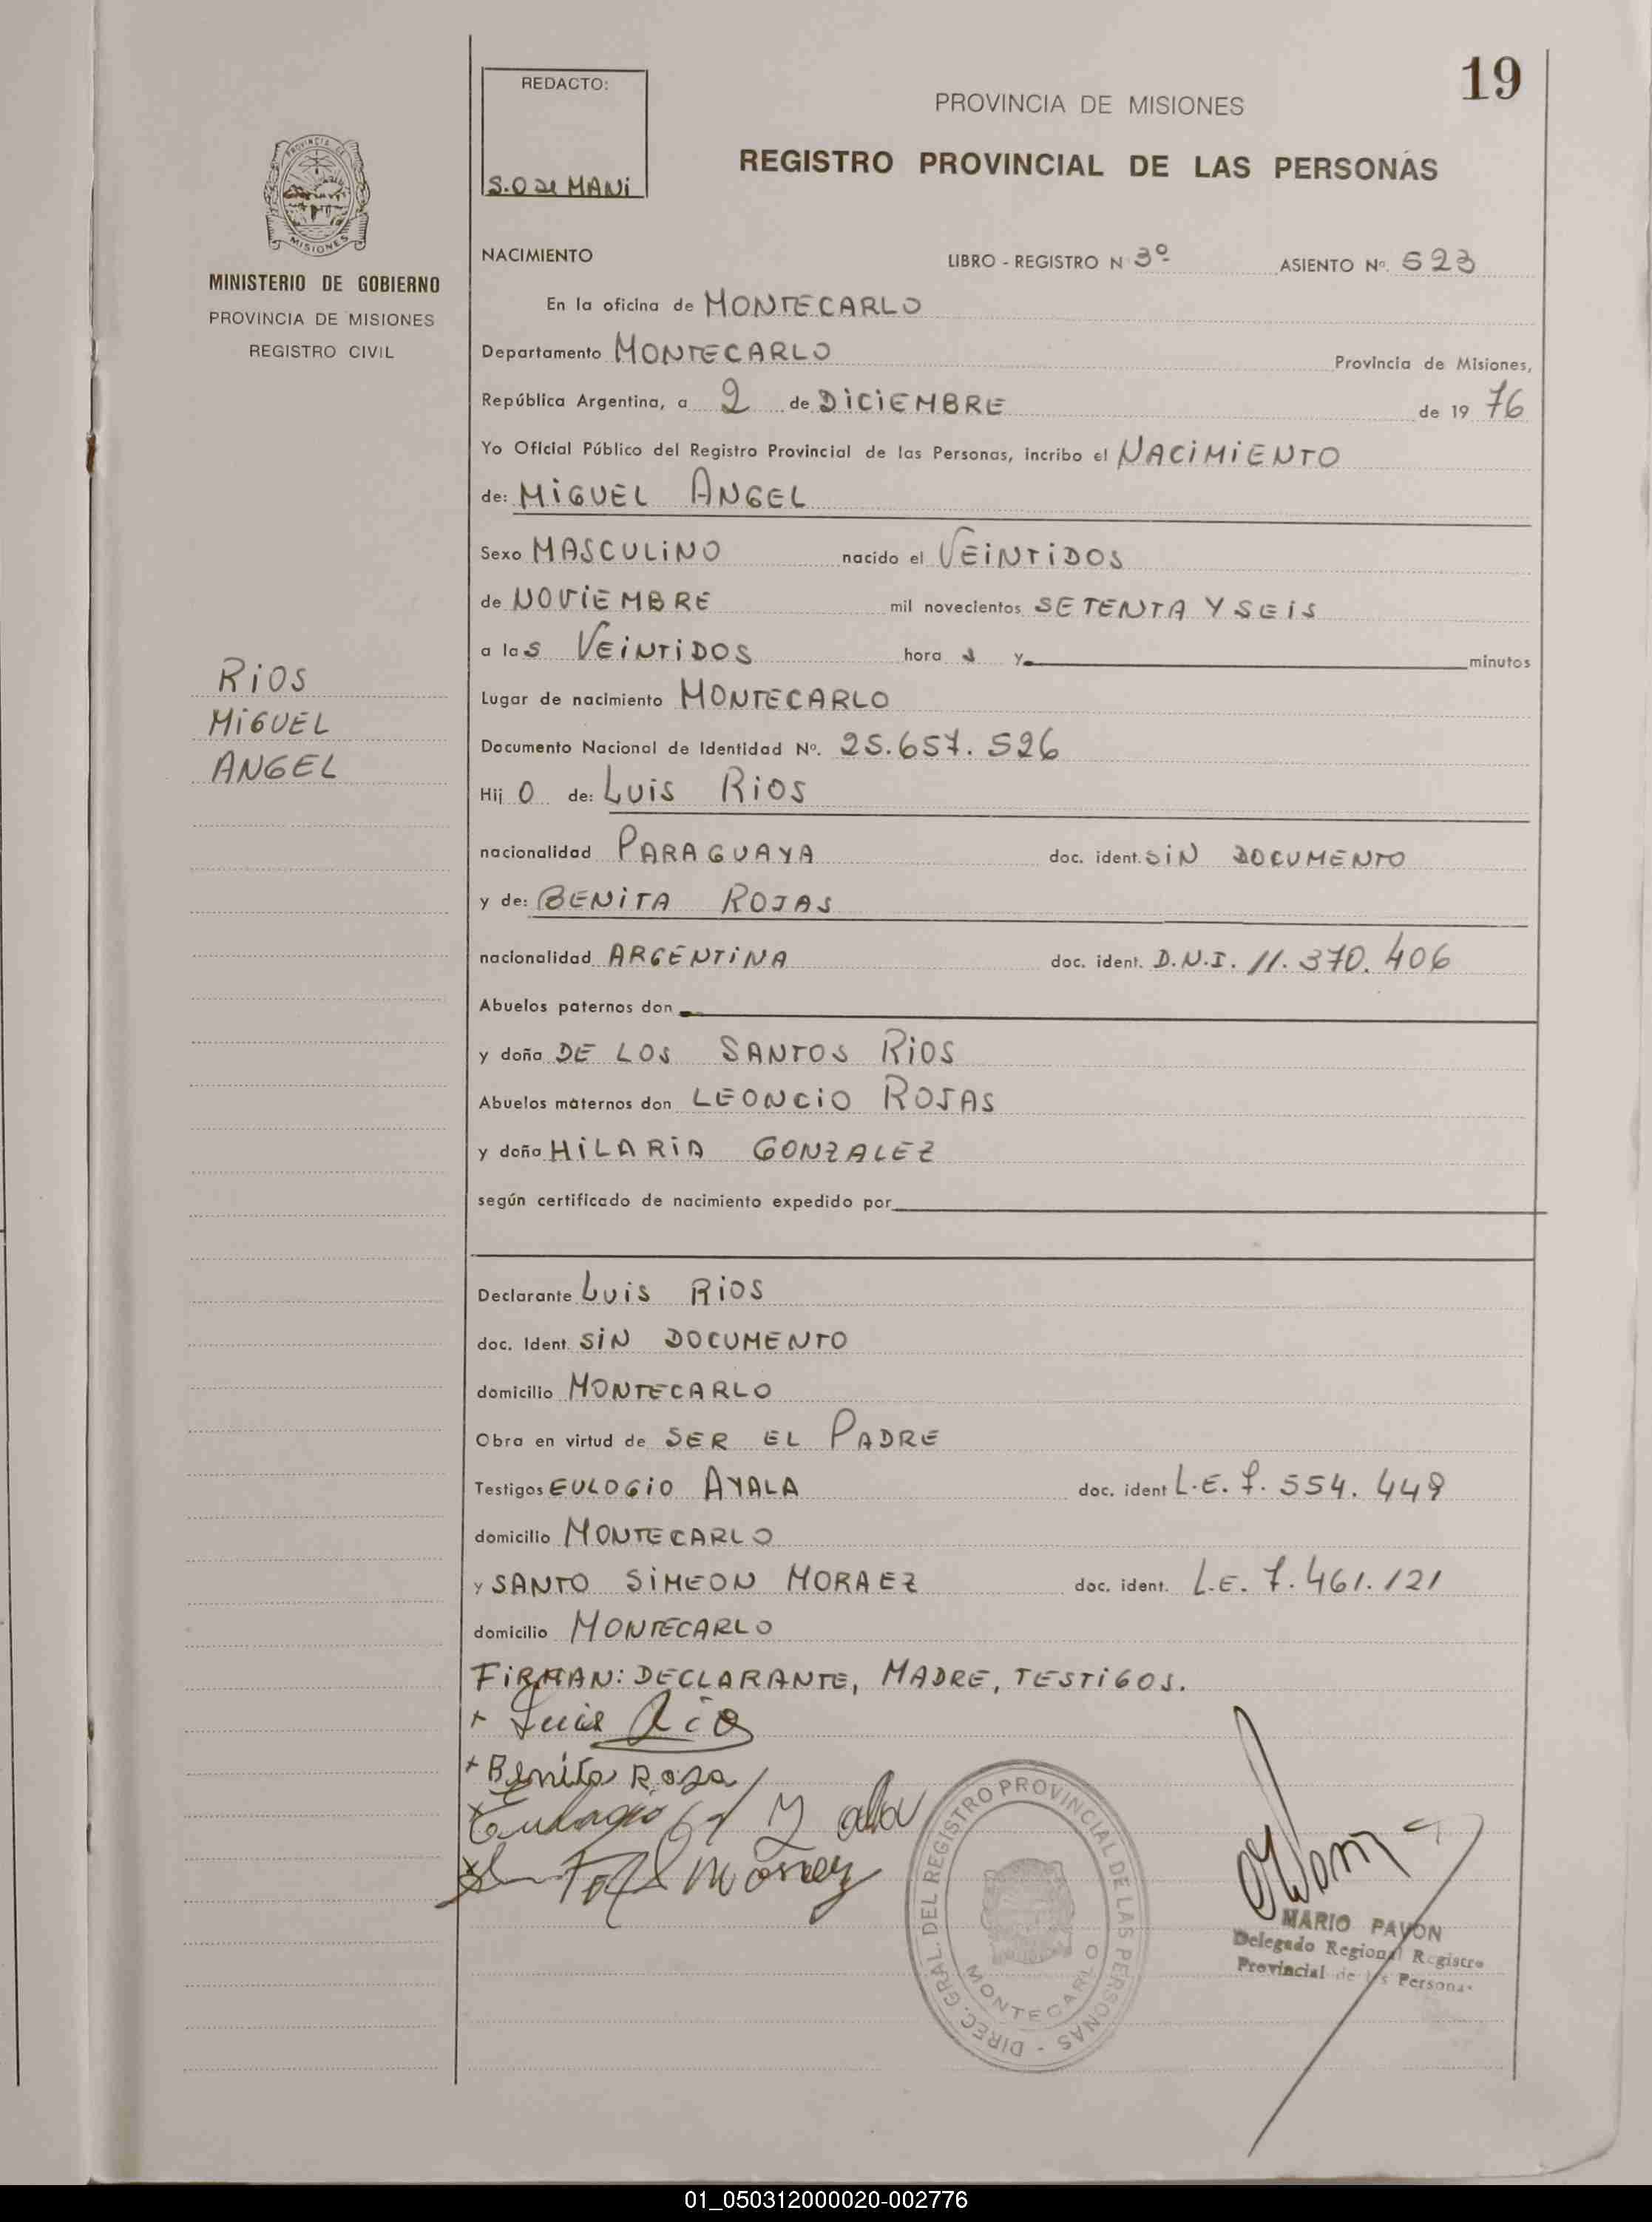 19
REDACTO:
PROVINCIA DE MISIONES
REGISTRO PROVINCIAL DE LAS PERSONAS
PROVINCIA DE
MISIONES
MINISTERIO DE GOBIERNO
PROVINCIA DE MISIONES
REGISTRO CIVIL
NACIMIENTO LIBRO - REGISTRO N 3º ASIENTO Nº. 523
En la oficina de MONTECARLO
Departamento MONTECARLO Provincia de Misiones,
República Argentina, a 2 de DICIEMBRE de 19 76
Yo Oficial Público del Registro Provincial de las Personas, incribo el NACIMIENTO
de: MIGUEL ANGEL
Sexo MASCULINO nacido el VEINTIDOS
de NOVIEMBRE mil novecientos SETENTA Y SEIS
a las VEINTIDOS hora s y minutos
RIOS
MIGUEL
ANGEL
Lugar de nacimiento MONTECARLO
Documento Nacional de Identidad Nº. 25.657.526
Hij O de: LUIS RIOS
nacionalidad PARAGUAYA doc. ident. SIN DOCUMENTO
y de: BENITA ROJAS
nacionalidad ARGENTINA doc. ident. D.N.I. 11.370.406
Abuelos paternos don
y doña DE LOS SANTOS RIOS
Abuelos maternos don LEONCIO ROJAS
y doña HILARIA GONZALEZ
según certificado de nacimiento expedido por
Declarante LUIS RIOS
doc. Ident. SIN DOCUMENTO
domicilio MONTECARLO
Obra en virtud de SER EL PADRE
Testigos EULOGIO AYALA doc. ident L.E. 7.554.449
domicilio MONTECARLO
y SANTO SIMEON MORAEZ doc. ident. L.E. 7.461.121
domicilio MONTECARLO
FIRMAN: DECLARANTE, MADRE, TESTIGOS.
+ Luis Rio
+ Benita Rosa
DIREC. GRAL. DEL REGISTRO PROVINCIAL DE LAS PERSONAS -
MONTECARLO
MARIO PAVON
Delegado Regional Registro
Provincial de las Personas
01_050312000020-002776